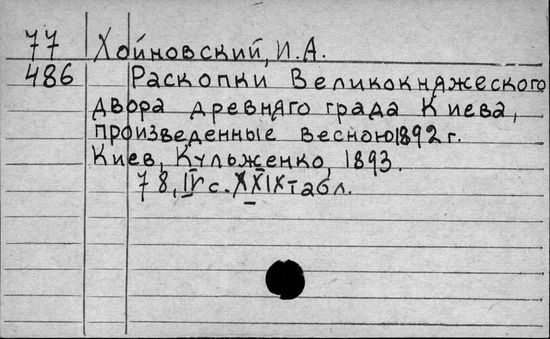 77 Хойновский, И.А.
486 Раскопки Великокняжеского
двора древняго града Киева,
произведенные весною 1892 г.
Киев, Кульженко, 1893.
78, IV с. XXIX табл.